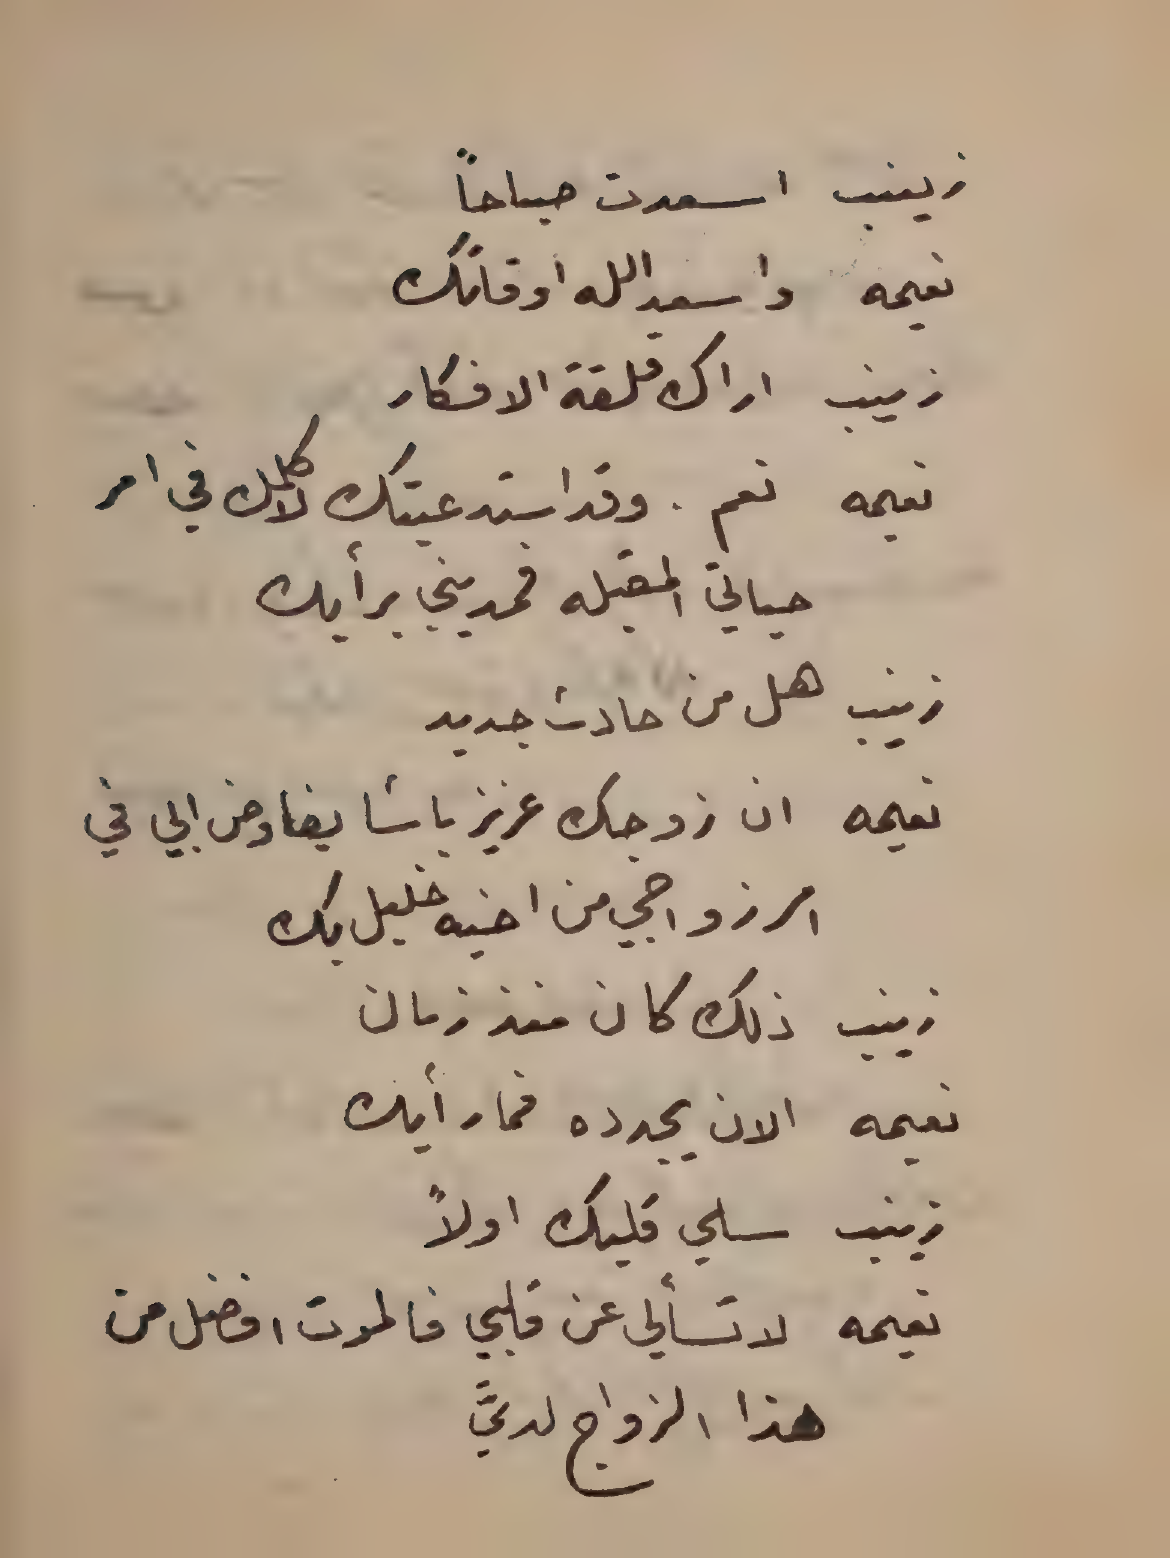 زينب اسعدت صباحاً
نعيمه واسعد الله اوقاتك
زينب اراك قلقة الافكار
نعيمه نعم . وقد استدعيتك لاكلمك في امر
حياتي المقبله فمديني برأيك
زينب هل من حادث جديد
نعيمه ان زوجك عزيز باشا يفاوض ابي في
امر زواجي من اخيه خليل بك
زينب ذلك كان منذ زمان
نعيمه الان يجدده فما رأيك
زينب سلي قلبك اولاً
نعيمه لا تسألي عن قلبي فالموت افضل من
هذا الزواج لديَّ